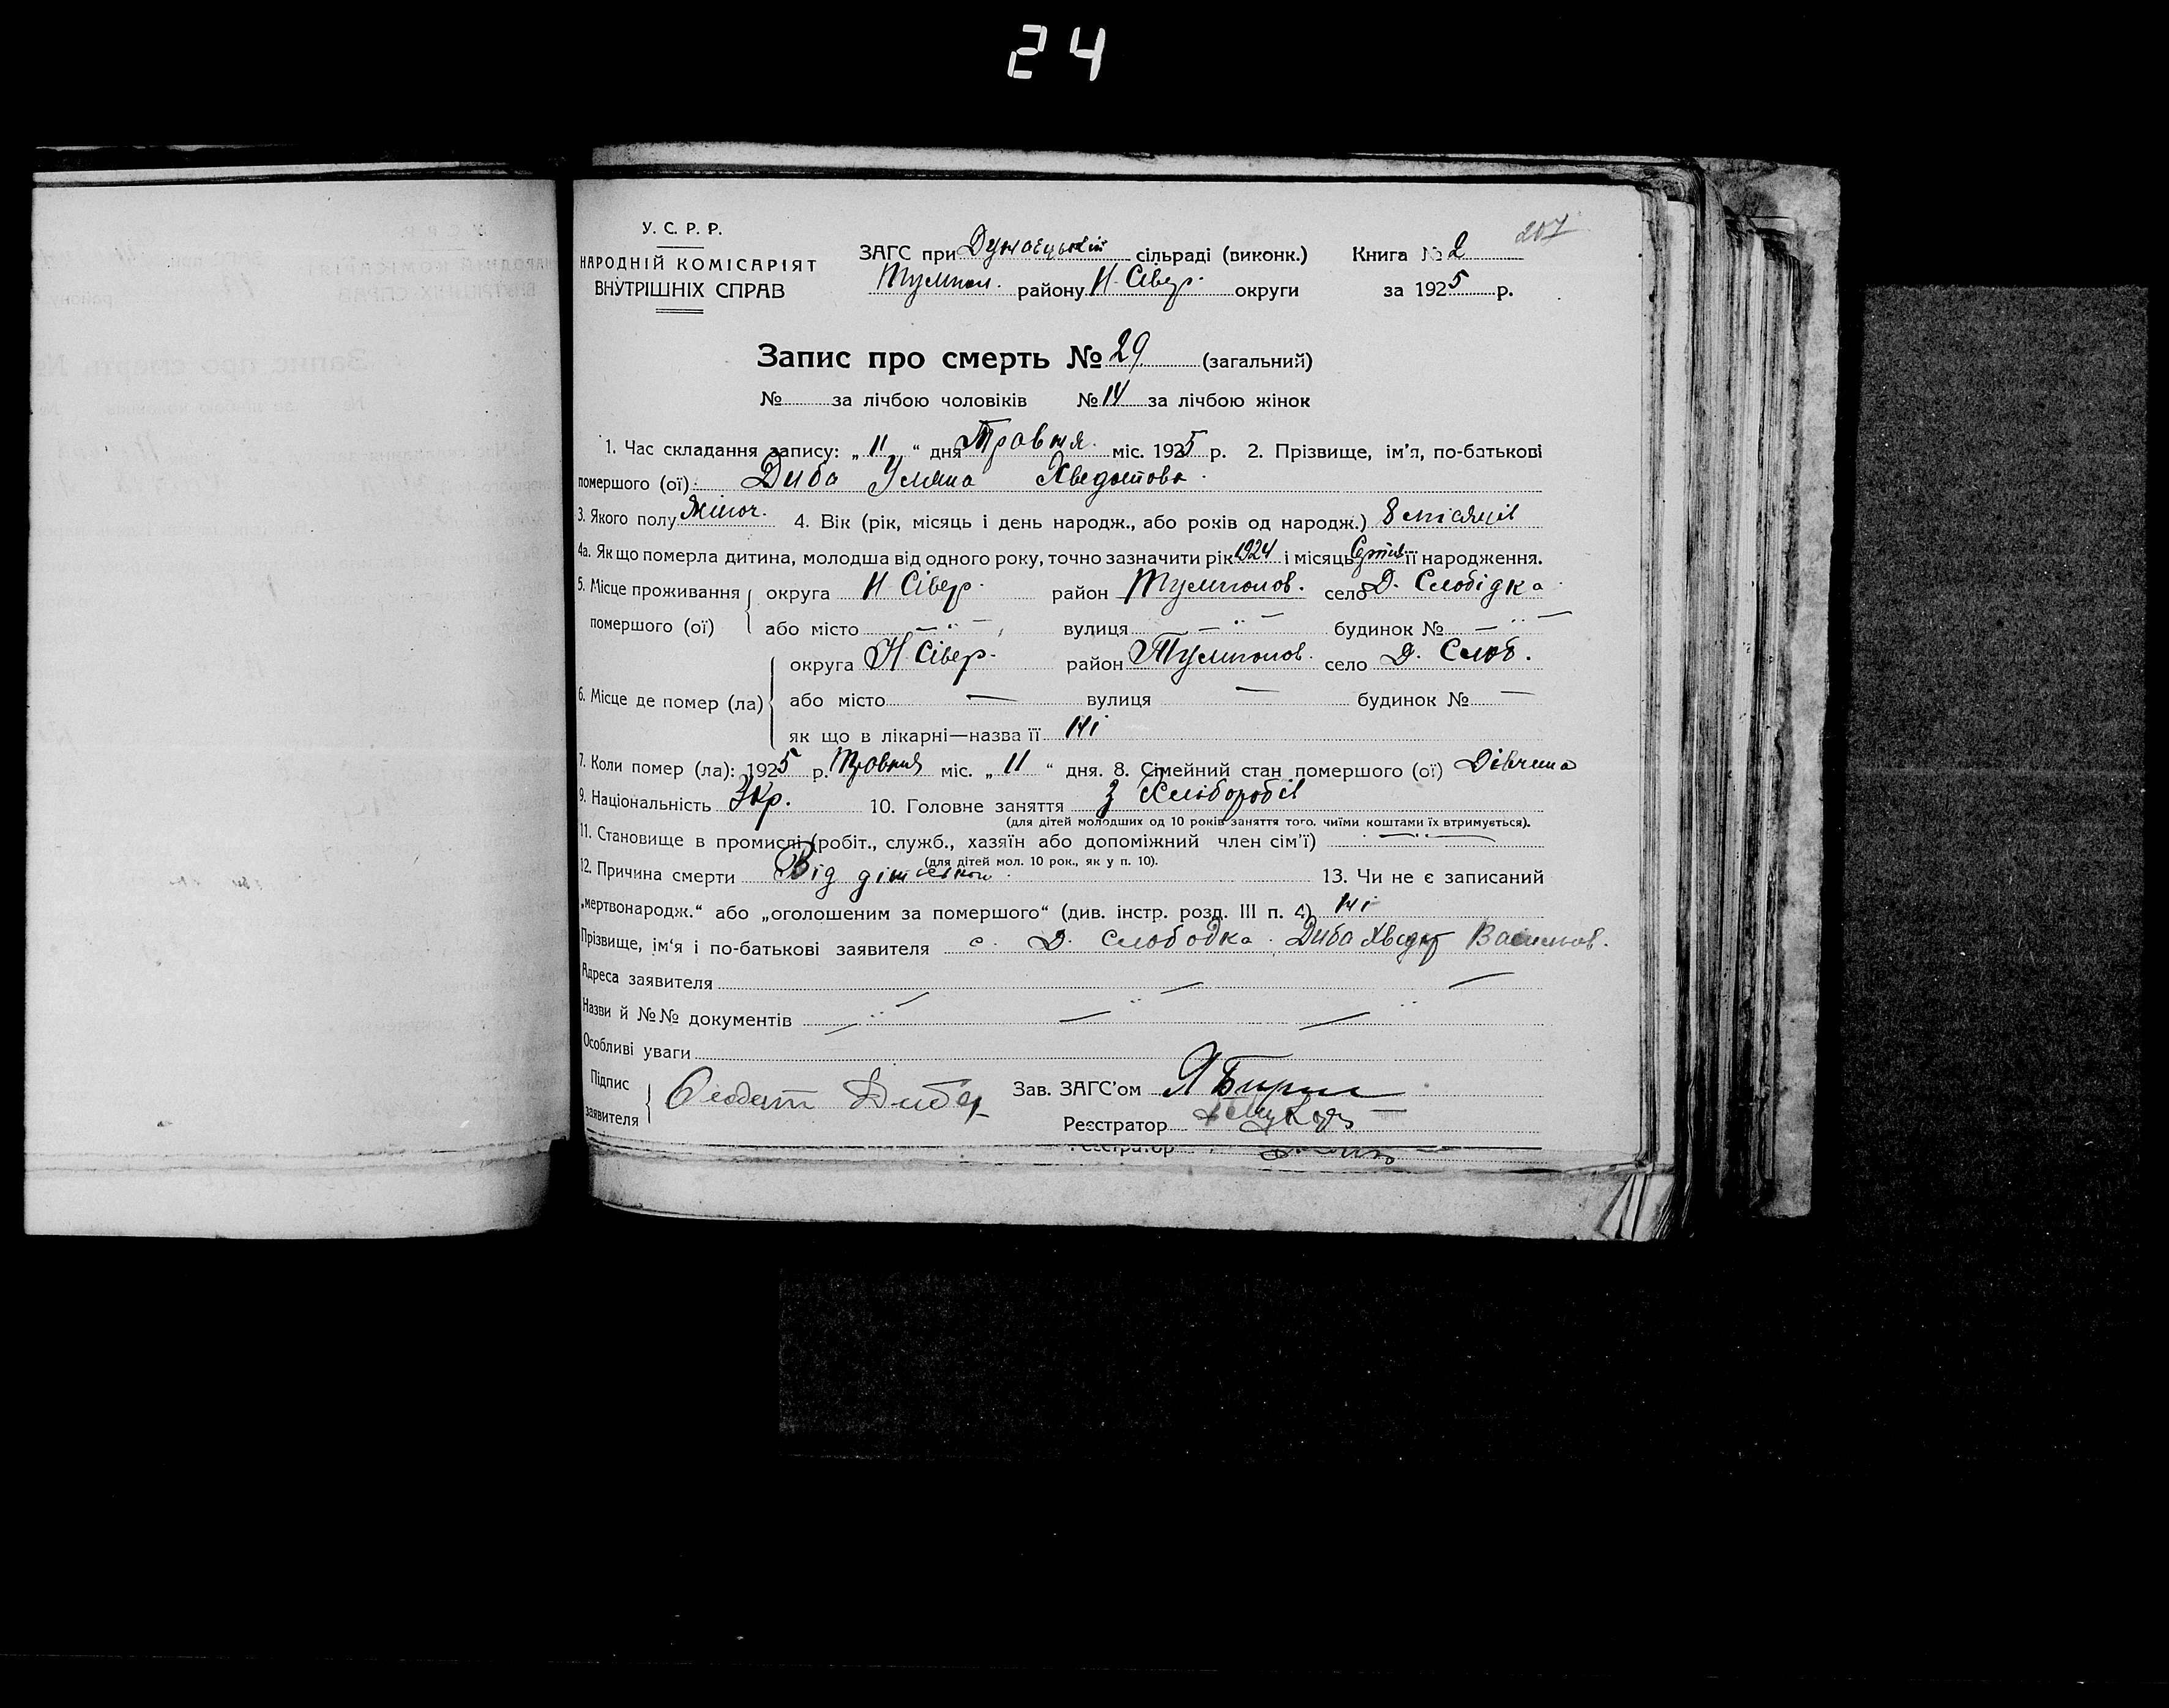 24
207
У. С. Р. Р.
НАРОДНІЙ КОМІСАРІЯТ
ВНУТРІШНІХ СПРАВ
ЗАГС при Дунаецький сільраді (виконк.) Книга № 2
района Н-Сівер. округи за 1925 р.
Запис про смерть № 29 (загальний)
№ за лічбою чоловіків № 14 за лічбою жінок
1. Час складання запису: „ 11 “ дня Травня міс. 1925 р. 2. Прізвище, ім'я, по-батькові
помершого (ої): Диба Уляна Хведотова
3. Якого полу Жіноч. 4. Вік (рік, місяць і день народж., або років од народж.) 8 місяців
4а. Як що померла дитина, молодша від одного року, точно зазначити рік 1924 і місяць її народження.
5. Місце проживання помершого (ої) округа Н Сівер. район село Д. Слобідка
або місто — „ — вулиця — „ — будинок № — „ —
6. Місце де помер (ла) округа Н-Сівер. район село Д. Слоб.
або місто — вулиця — будинок № —
як що в лікарні—назва її ні
7. Коли помер (ла): 1925 р. Травня міс. „ 11 “ дня. 8. Сімейний стан помершого (ої) Дівчина
9. Національність Укр. 10. Головне заняття з Хліборобів
(для дітей молодших од 10 років заняття того, чиїми коштами їх втримується).
11. Становище в промислі (робіт., служб., хазяїн або допоміжний член сім'ї) — „ —
(для дітей мол. 10 рок., як у п. 10).
12. Причина смерти Від 13. Чи не є записаний
„мертвонародж.“ або „оголошеним за помершого“ (див. інстр. розд. III п. 4) ні
Прізвище, ім'я і по-батькові заявителя с. Д. Слободка Диба Хведот Васильов.
Адреса заявителя — — —
Назви й №№ документів — „ — —
Особливі уваги
Підпис заявителя Федот Диба Зав. ЗАГС'ом
Реєстратор
Реєстратор